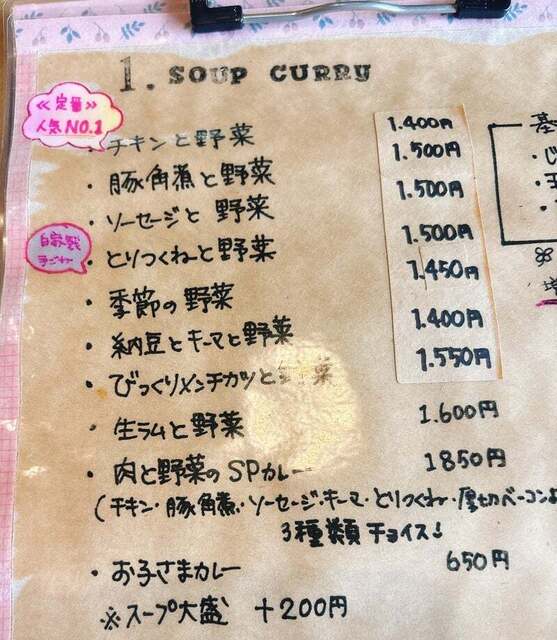 1. SOUP CURRY
≪定番≫
人気NO.1
・チキンと野菜 1.400円
・豚角煮と野菜 1.500円
・ソーセージと野菜 1.500円
自家製
・とりつくねと野菜 1.500円
・季節の野菜 1.450円
・納豆とキーマと野菜 1.400円
・びっくりメンチカツと野菜 1.550円
・生ラムと野菜 1.600円
・肉と野菜のSPカレー 1850円
(チキン・豚角煮・ソーセージ・キーマ・とりつくね・厚切ベーコン
3種類チョイス!
・お子さまカレー 650円
※スープ大盛 +200円
基
・じ